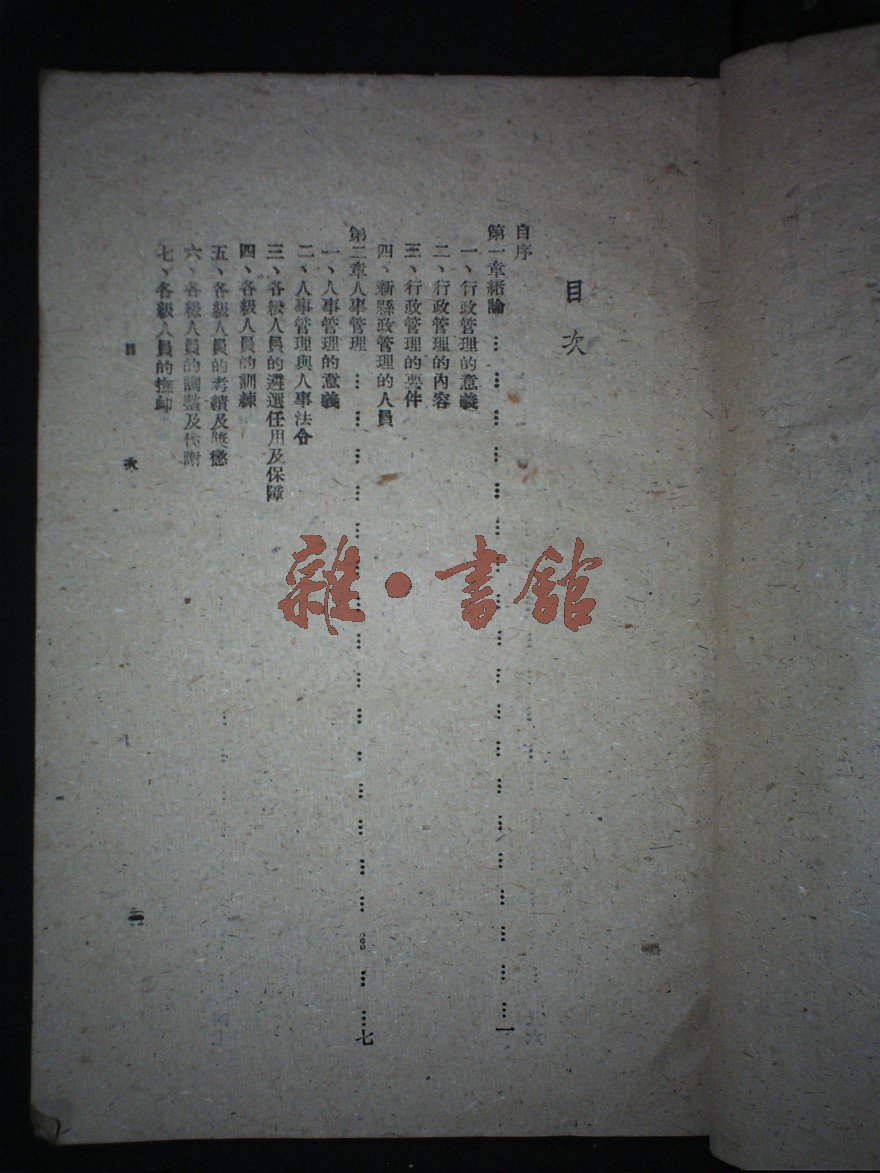 目次
自序
第一章緒論 … … … … … … … … … … … … … … … … … … 一
一、行政管理的意義
二、行政管理的內容
三、行政管理的要件
四、新縣政管理的人員
第二章人事管理 … … … … … … … … … … … … … … … … … … 七
一、人事管理的意義
二、人事管理與人事法令
三、各級人員的遴選任用及保障
四、各級人員的訓練
五、各級人員的考績及獎懲
六、各級人員的調整及代謝
七、各級人員的撫卹
目次
雜·書舘